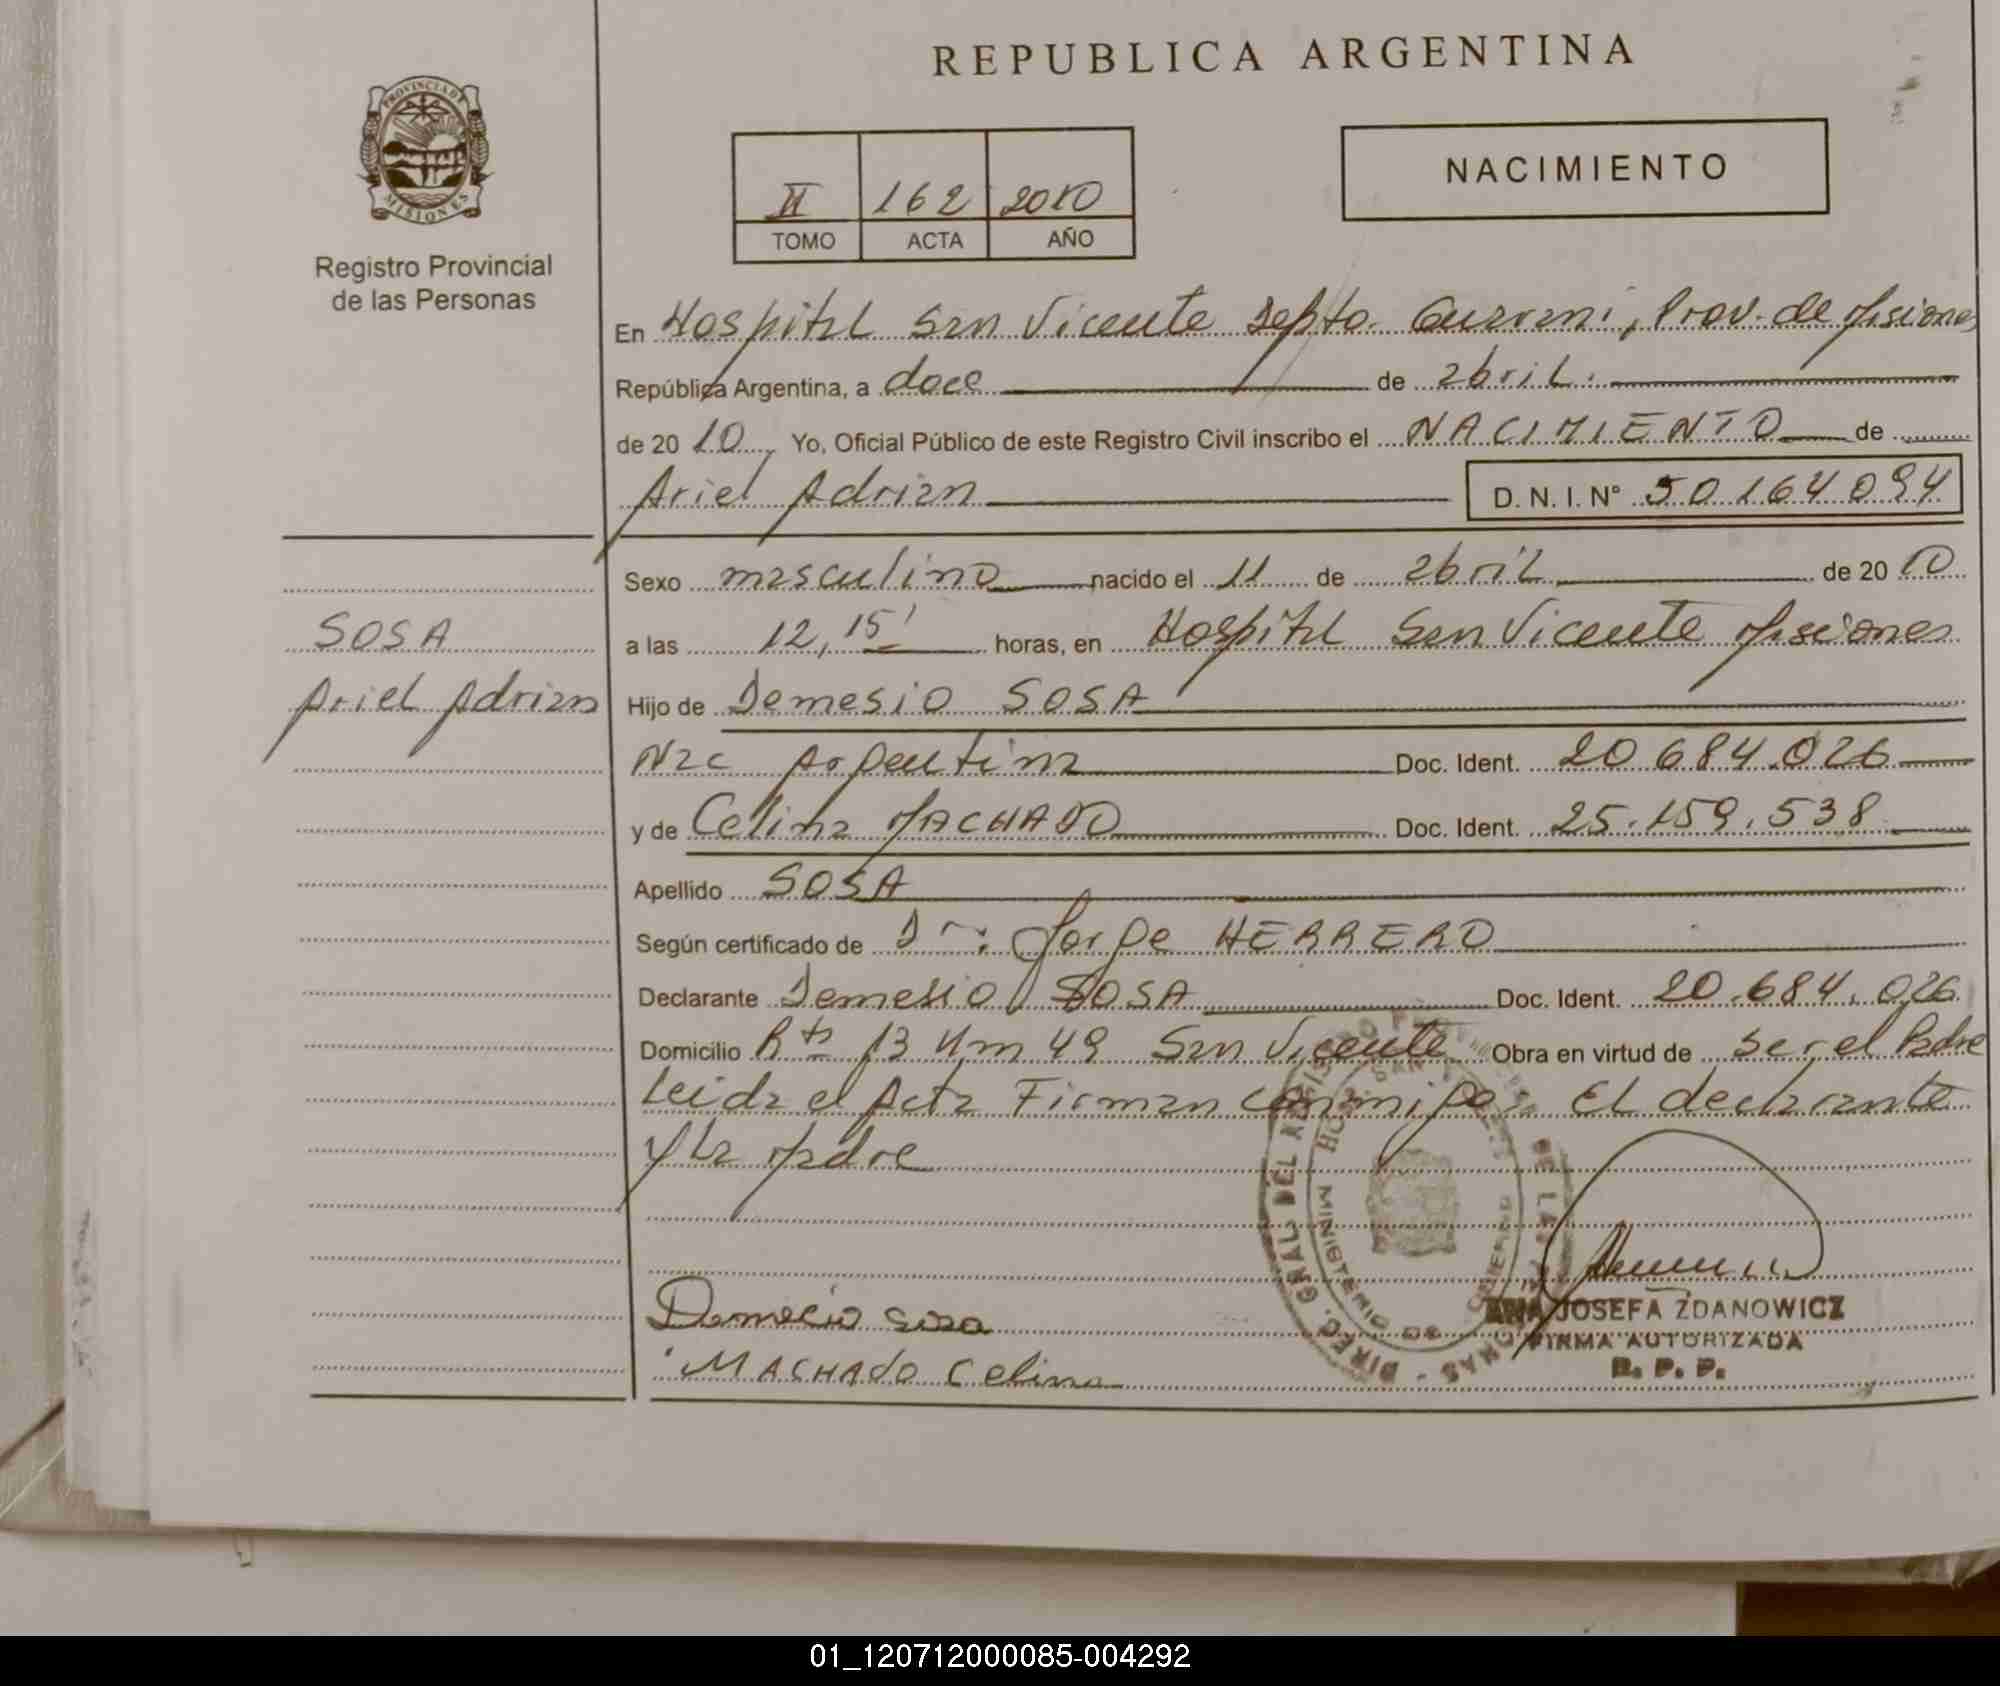 REPUBLICA ARGENTINA
PROVINCIA DE
MISIONES
Registro Provincial
de las Personas
NACIMIENTO
II 162 2010
TOMO ACTA AÑO
En Hospital San Vicente Depto. Guarani, Prov. de Misiones
República Argentina, a doce de abril.
de 2010, Yo, Oficial Público de este Registro Civil inscribo el NACIMIENTO de
Ariel Adrian D. N. I. Nº 50164094
Sexo masculino nacido el 11 de abril de 2010
SOSA
a las 12,15' horas, en Hospital San Vicente Misiones
Ariel Adrian
Hijo de Demesio SOSA
Nac Argentina Doc. Ident. 20.684.026
y de Celina MACHADO Doc. Ident. 25.159.538
Apellido SOSA
Según certificado de Dr. Jorge HERRERO
Declarante Demesio SOSA Doc. Ident. 20.684.026
Domicilio Rta 13 Km 49 San Vicente Obra en virtud de ser el Padre
Leida el Acta Firman conmigo El declarante
y La Madre
DIREC. GRAL. DEL REGISTRO DE LAS PERSONAS
MINISTERIO DE GOBIERNO
Demecio Sosa
ANA JOSEFA ZDANOWICZ
FIRMA AUTORIZADA
R. P. P.
MACHADO Celina
01_120712000085-004292